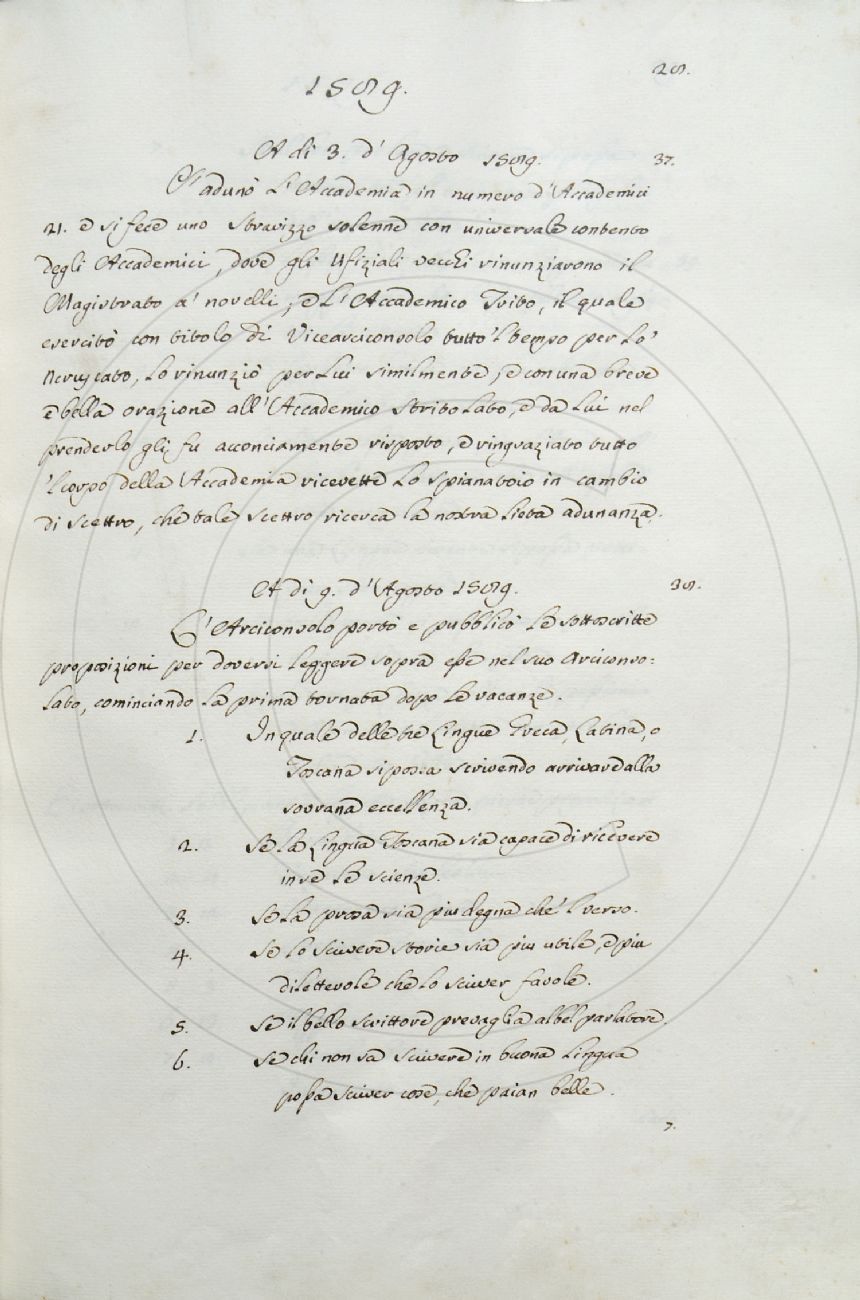 28.
1589.
A di 3. d' Agosto 1589. 37.
S' adunò l'Accademia in numero d'Accademici
21. e si fece uno stravizzo solenne con universale contento
degli Accademici, dove gli Ufiziali vecchi rinunziarono il
Magistrato a' novelli, e l'Accademico Trito, il quale
esercitò con titolo di Vicearciconsolo tutto 'l tempo per lo
Gramolato, lo rinunziò per lui similmente, e con una breve
e bella orazione all'Accademico Stritolato, e da lui nel
prenderlo gli fu acconciamente risposto, e ringraziato tutto
'l corpo della Accademia ricevette lo spianatoio in cambio
di scettro, che tale scettro ricerca la nostra lieta adunanza.
A di 9. d'Agosto 1589. 38.
L' Arciconsolo portò e pubblicò le sottoscritte
proposizioni per doversi leggere sopra esse nel suo Arciconso=
lato, cominciando la prima tornata dopo le vacanze.
1. In quale delle tre Lingue Greca, Latina, o
Toscana si possa scrivendo arrivare alla
sovrana eccellenza.
2. Se la Lingua Toscana sia capace di ricevere
in se le scienze.
3. Se la prosa sia piu degna che 'l verso.
4. Se lo scrivere storie sia piu utile, e piu
dilettevole che lo scriver favole.
5. Se il bello scrittore prevaglia al bel parlatore.
6. Se chi non sa scrivere in buona Lingua
possa scriver cose, che paian belle.
7.